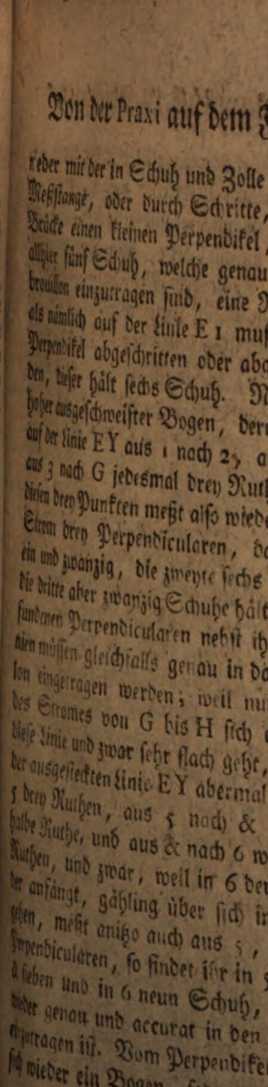 Von der Praxi auf dem
weder mit der in Schuh und Zolle
Meßstange, oder durch Schritte,
Brücke einen kleinen Perpendikel,
allhier fünf Schuh, welche genau
brouillon einzutragen sind, eine
als nämlich auf der Linie E 1 muß
Perpendikel abgeschritten oder
den, dieser hält sechs Schuh.
hoher ausgeschweifter Bogen,
auf der Linie EY aus 1 nach 2,
aus 3 nach G jedesmal drey
diesen drey Punkten meßt also
Strom drey Perpendicularen,
ein und zwanzig, die zweyte sechs
die dritte aber zwanzig Schuhe hält
fundenen Perpendicularen nebst
nien müssen gleichfalls genau in
lon eingetragen werden; weil
des Stromes von G bis H sich
diese Linie und zwar sehr flach geht,
der ausgesteckten Linie EY abermal
5 drey Ruthen, aus 5 nach &
halbe Ruthe, und aus & nach 6
Ruthen, und zwar, weil in 6
der anfängt, gähling über sich
gehen, meßt anitzo auch aus 5,
Perpendicularen, so findet ihr in
& sieben und in 6 neun Schuh,
wieder genau und accurat in den
einzutragen ist. Vom Perpendikel
sich wieder ein Bogen